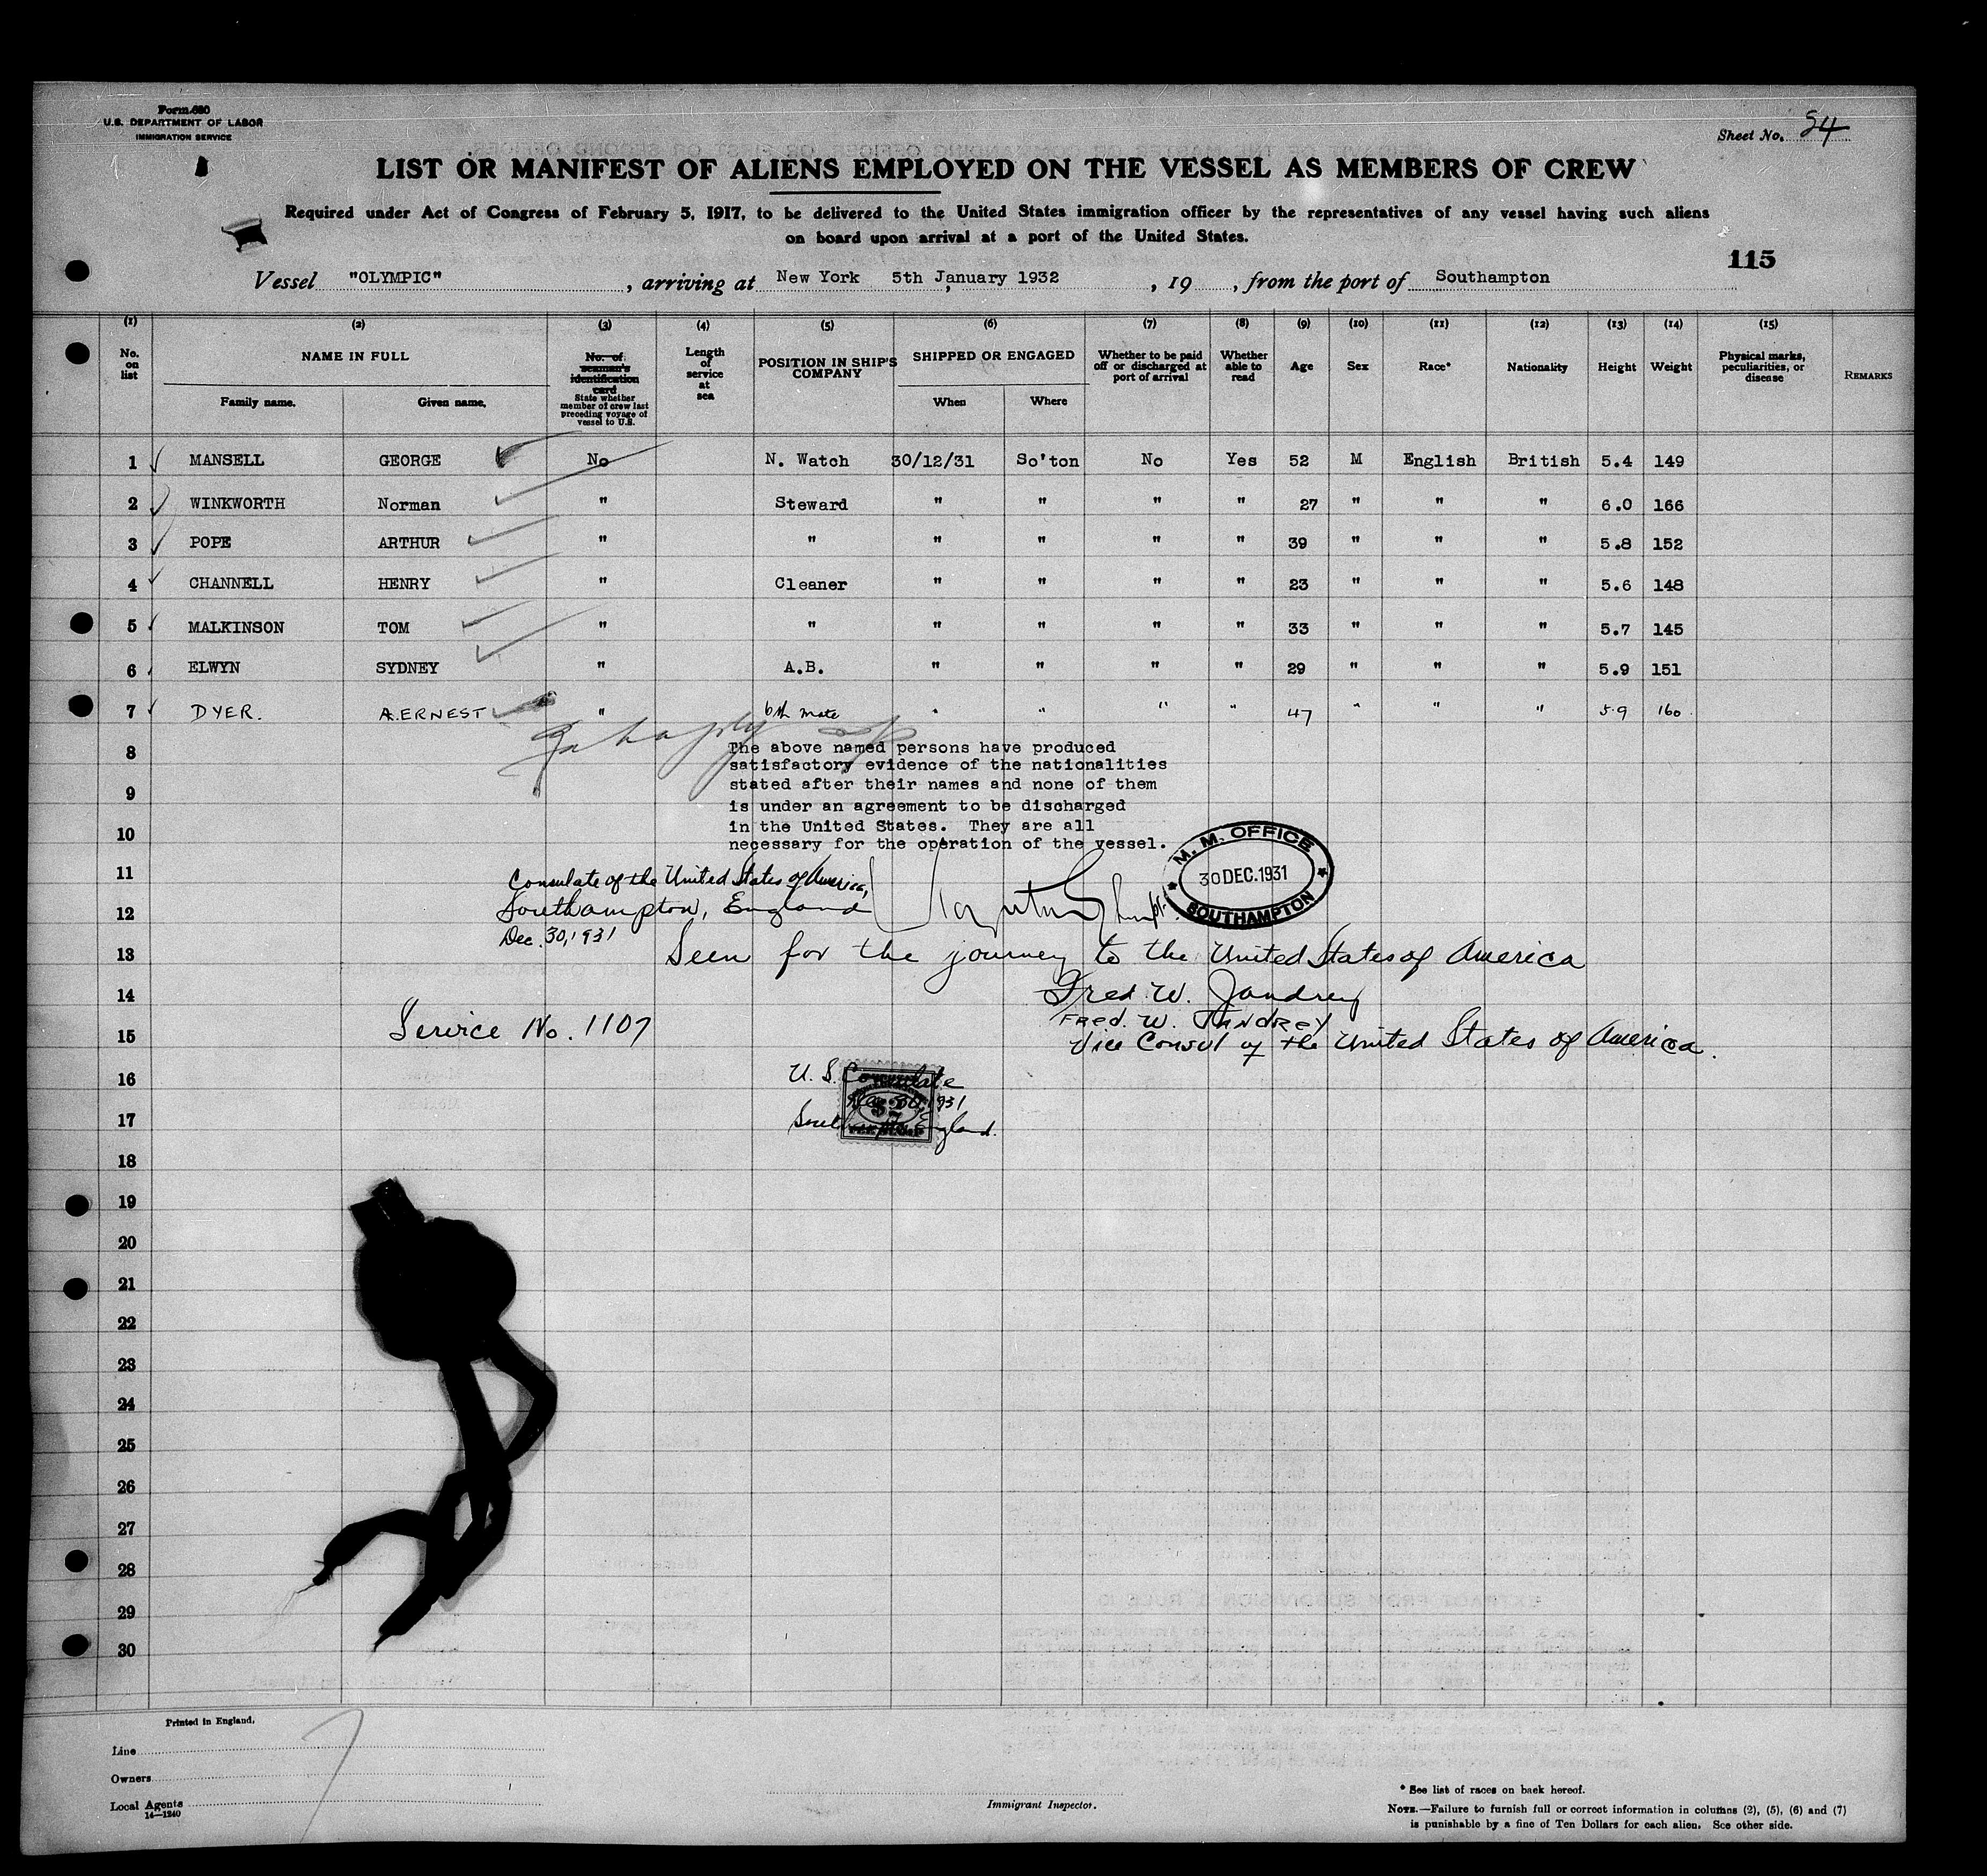 Form 680
U.S. DEPARTMENT OF LABOR
IMMIGRATION SERVICE
Sheet No. 54
LIST OR MANIFEST OF ALIENS EMPLOYED ON THE VESSEL AS MEMBERS OF CREW
Required under Act of Congress of February 5, 1917, to be delivered to the United States immigration officer by the representatives of any vessel having such aliens
on board upon arrival at a port of the United States.
115
Vessel "OLYMPIC", arriving at New York 5th January 1932, 19 , from the port of Southampton
(1) (2) (3) (4) (5) (6) (7) (8) (9) (10) (11) (12) (13) (14) (15)
No. on list
NAME IN FULL
Family name. Given name.
No. of seaman's identification card
State whether member of crew last preceding voyage of vessel to U.S.
Length of service at sea
POSITION IN SHIP'S COMPANY
SHIPPED OR ENGAGED
When Where
Whether to be paid off or discharged at port of arrival
Whether able to read
Age
Sex
Race*
Nationality
Height
Weight
Physical marks, peculiarities, or disease
REMARKS
1 MANSELL GEORGE No N. Watch 30/12/31 So'ton No Yes 52 M English British 5.4 149
2 WINKWORTH Norman " Steward " " " " 27 " " " 6.0 166
3 POPE ARTHUR " " " " " " 39 " " " 5.8 152
4 CHANNELL HENRY " Cleaner " " " " 23 " " " 5.6 148
5 MALKINSON TOM " " " " " " 33 " " " 5.7 145
6 ELWYN SYDNEY " A.B. " " " " 29 " " " 5.9 151
7 DYER. A.ERNEST " 6th mate " " " " 47 " " " 5.9 160
8
The above named persons have produced
satisfactory evidence of the nationalities
stated after their names and none of them
9
is under an agreement to be discharged
10
in the United States. They are all
necessary for the operation of the vessel.
M. M. OFFICE
30 DEC. 1931
SOUTHAMPTON
11
Consulate of the United States of America,
12
Southampton, England
Dec. 30, 1931
13
Seen for the journey to the United States of America
14
Fred. W. Jandrey
FRED. W. JANDREY
15
Service No. 1107
Vice Consul of the United States of America.
16
U. S. Consulate
Dec 30, 1931
$2
17
Southampton England.
18
19
20
21
22
23
24
25
26
27
28
29
30
Printed in England.
Line
Owners
Local Agents
14—1240
Immigrant Inspector.
* See list of races on back hereof.
NOTE.—Failure to furnish full or correct information in columns (2), (5), (6) and (7)
is punishable by a fine of Ten Dollars for each alien. See other side.